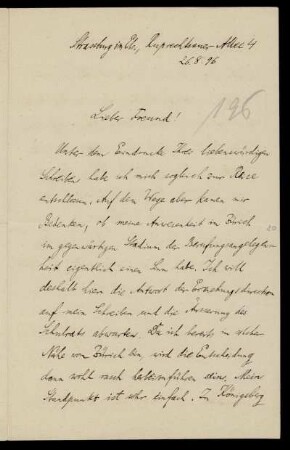 Strassburg i/Els., Ruprechtsauer-Allee 4
26.8.96
196
Lieber Freund!
Unter dem Eindrucke Ihres liebenswürdigen
Schreibens habe ich mich sogleich zur Reise
entschlossen. Auf dem Wege aber kamen mir
Bedenken, ob meine Anwesenheit in Zürich
im gegenwärtigen Stadium der Berufungsangelegen-
heit eigentlich einen Sinn habe. Ich will
deshalb hier die Antwort der Erziehungsdirection
auf mein Schreiben und die Äusserung des
Schulrats abwarten. Da ich bereits in solcher
Nähe von Zürich bin, wird die Entscheidung
dann wohl rasch herbeizuführen sein. Mein
Standpunkt ist sehr einfach. In Königsberg